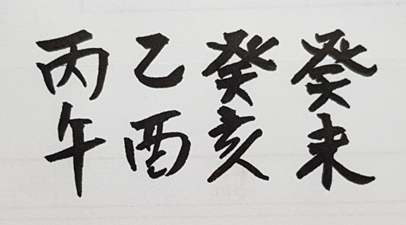 癸未
癸亥
乙酉
丙午